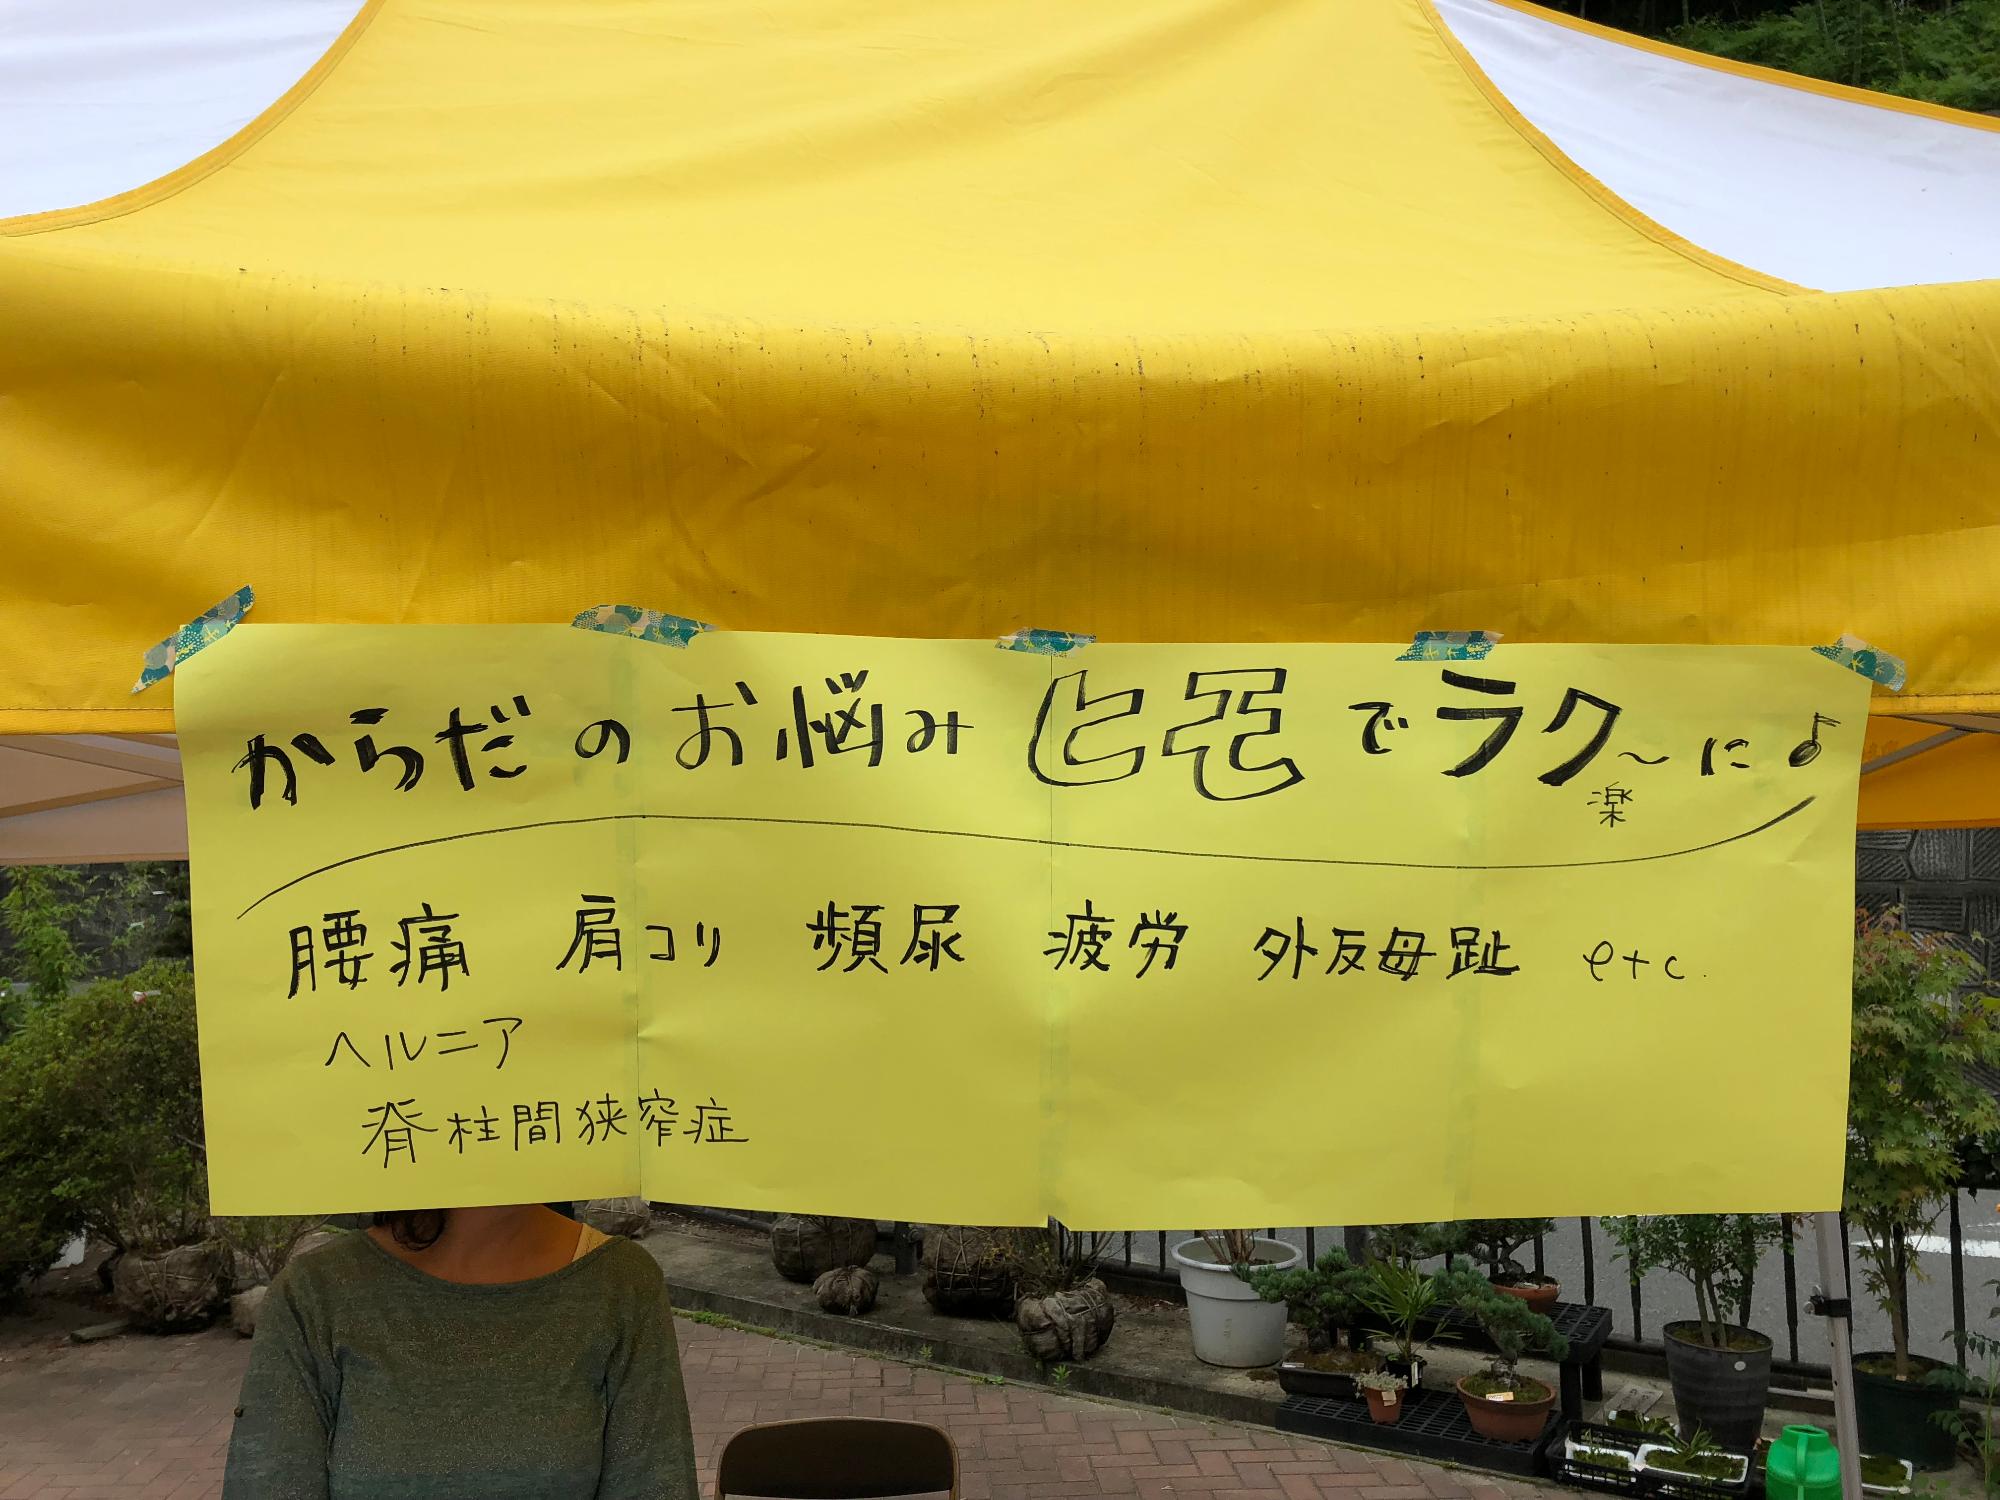 からだのお悩みヒモでラク～に♪
楽
腰痛 肩コリ 頻尿 疲労 外反母趾 etc.
ヘルニア
脊柱間狭窄症